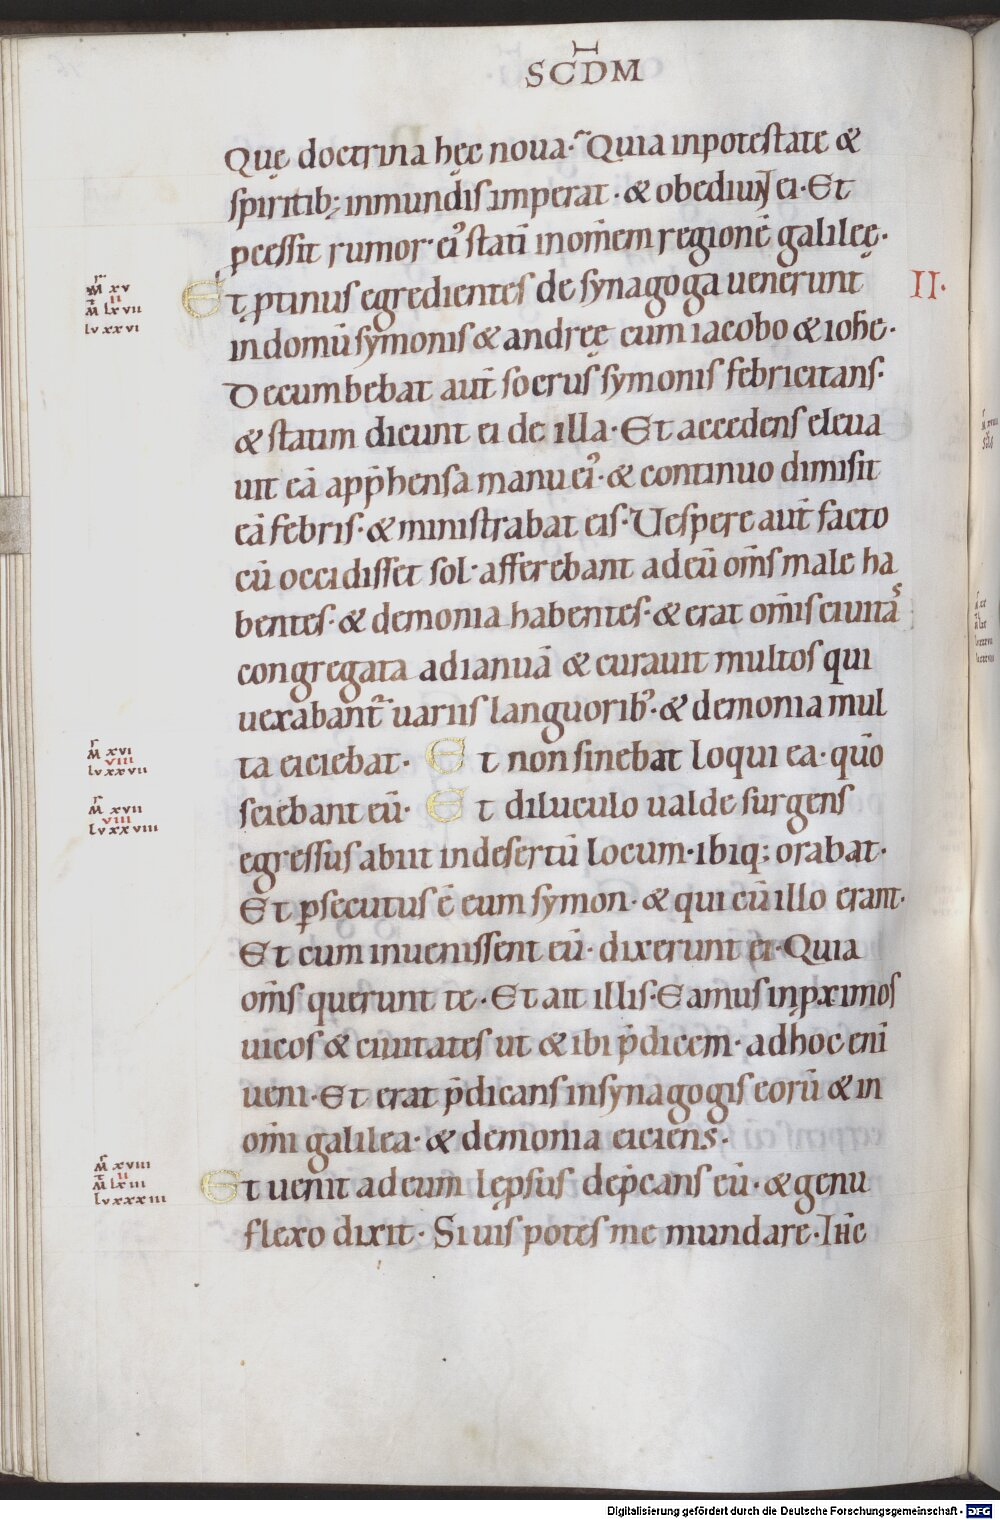 SCDM
Quę doctrina hęc noua· Quia inpotestate &
spiritib; inmundis imperat · & obediuṅt ei · Et
pcessit rumor · ei' stati̅ in om̅em regione̅ galileę·
Et ptinus egredientes de synagoga uenerunt
II·
M xv
II
M lxvii
lv xxvi
in domu̅ symonis & andreę cum iacobo & ioh̅e·
Decumbebat aut̅ socrus symonis febricitans·
& statim dicunt ei de illa· Et accedens eleua
uit ea̅ app̅hensa manu ei'· & continuo dimisit
ea̅ febris· & ministrabat eis· Uespere aut̅ facto
cu̅ occidisset sol· afferebant ad eu̅ om̅s male ha
bentes· & demonia habentes· & erat om̅is ciuitas
congregata ad ianua̅ & curauit multos qui
uexabant̅ uariis languorib'· & demonia mul
ta eiciebat· Et non sinebat loqui ea· quo̅
M xvi
viii
lv xxvii
sciebant eu̅· Et diluculo ualde surgens
M xvii
viii
lv xxviii
egressus abiit in desertu̅ locum· ibiq; orabat·
Et psecutus e̅ eum symon· & qui cu̅ illo erant·
Et cum inuenissent eu̅· dixerunt ei· Quia
om̅s querunt te· Et ait illis· Eamus in pximos
uicos & ciuitates ut & ibi p̅dicem· ad hoc eni̅
ueni· Et erat p̅dicans in synagogis eoru̅ & in
om̅i galilea· & demonia eiciens·
Et uenit ad eum lepsus dep̅cans eu̅· & genu
M xviii
II
M lxiii
lv xxxiii
flexo dixit· Si uis potes me mundare· Ih̅c
Digitalisierung gefördert durch die Deutsche Forschungsgemeinschaft - DFG